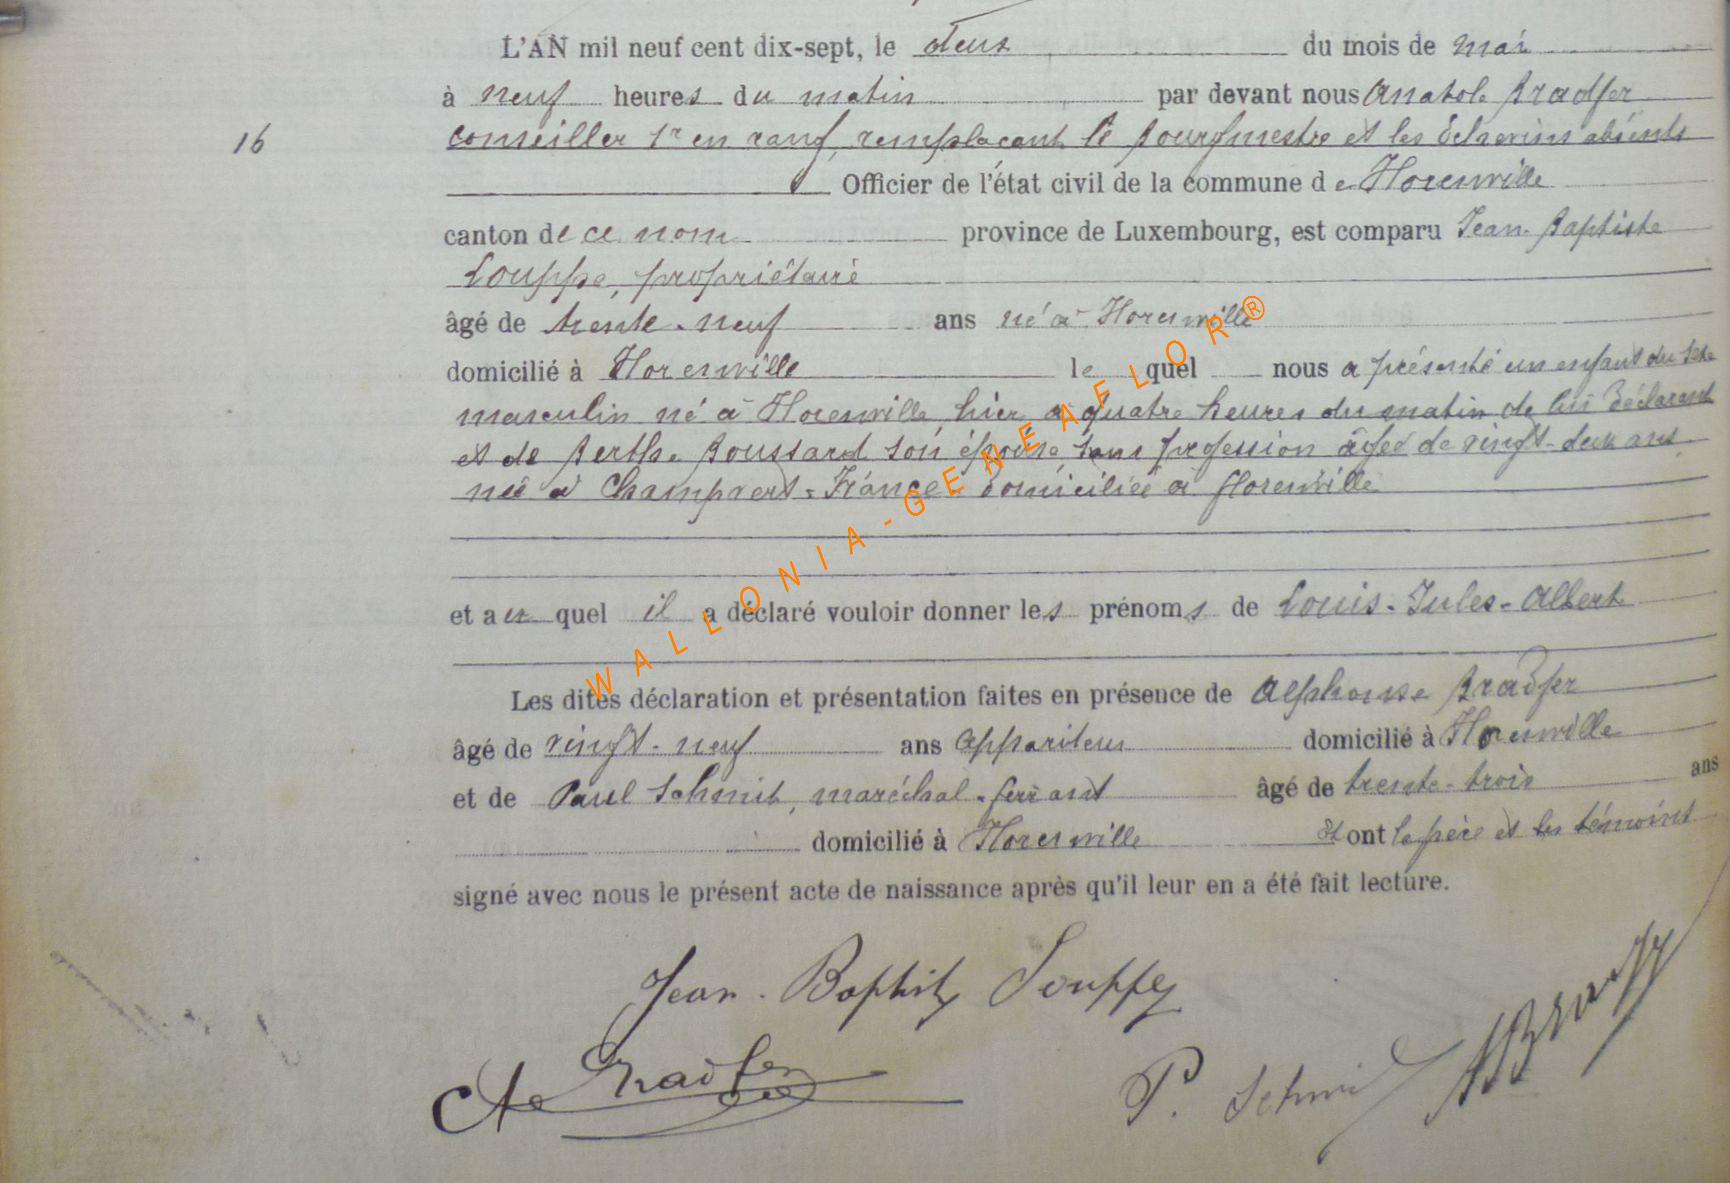 L'AN mil neuf cent dix-sept, le deux du mois de mai
à neuf heures du matin par devant nous Anatole Bradfer
16 conseiller 1r en rang, remplaçant le Bourgmestre et les Echevins absents
Officier de l'état civil de la commune de Florenville
canton de ce nom province de Luxembourg, est comparu Jean Baptiste
Louppe, propriétaire
âgé de trente-neuf ans né à Florenville
domicilié à Florenville lequel nous a présenté un enfant du sexe
masculin né à Florenville, hier à quatre heures du matin de lui Déclarant
et de Berthe Poussard son épouse sans profession âgée de vingt-deux ans
née à Champvert - France - domiciliée à Florenville
et au quel il a déclaré vouloir donner les prénoms de Louis-Jules-Albert
Les dites déclaration et présentation faites en présence de Alphonse Bradfer
âgé de vingt-neuf ans appariteur domicilié à Florenville
et de Paul Schmit, maréchal-ferrant âgé de trente-trois ans
domicilié à Florenville Et ont le père et les témoins
signé avec nous le présent acte de naissance après qu'il leur en a été fait lecture.
Jean-Baptiste Louppe
A Bradfer
P. Schmit
WALLONIA-GENEAFLOR®